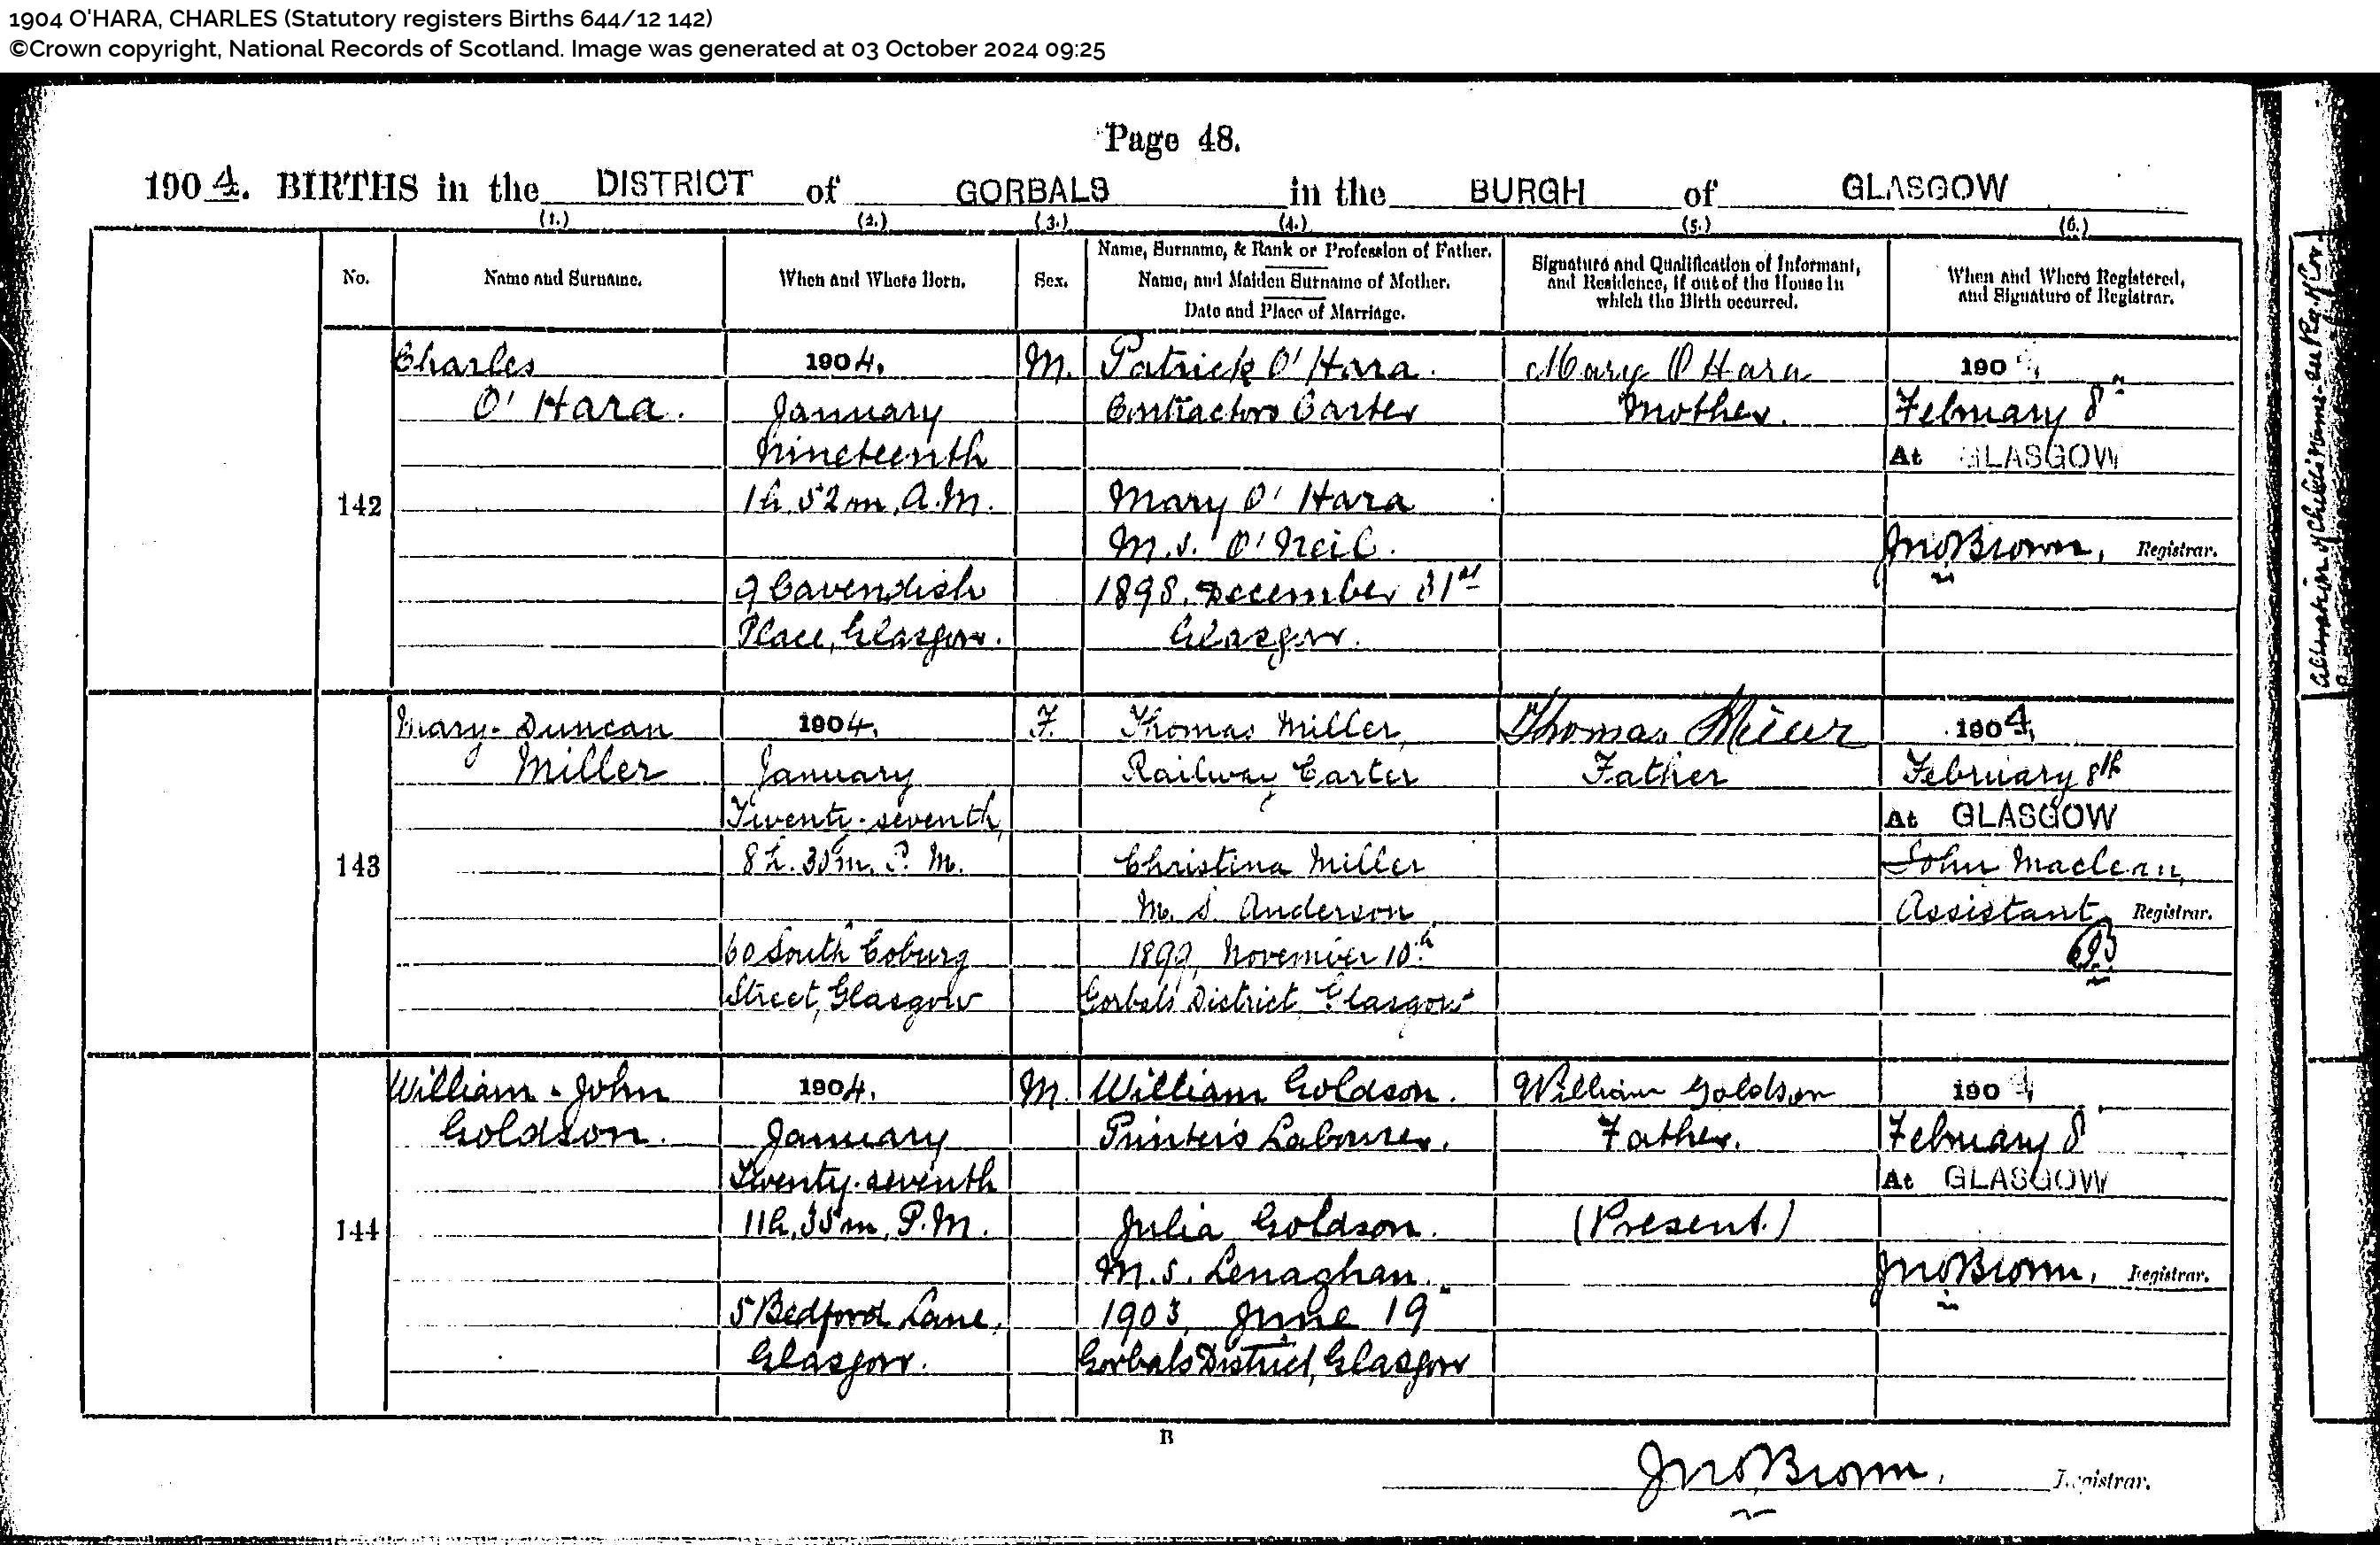 1904 O'HARA, CHARLES (Statutory registers Births 644/12 142)
©Crown copyright, National Records of Scotland. Image was generated at 03 October 2024 09:25
Page 48.
1904. BIRTHS in the DISTRICT of GORBALS in the BURGH of GLASGOW
(1.) (2.) (3.) (4.) (5.) (6.)
No.
Name and Surname.
When and Where Born.
Sex.
Name, Surname, & Rank or Profession of Father.
Name, and Maiden Surname of Mother.
Date and Place of Marriage.
Signature and Qualification of Informant,
and Residence, if out of the House in
which the Birth occurred.
When and Where Registered,
and Signature of Registrar.
142
Charles
O'Hara.
1904.
January
Nineteenth
1h. 52m. A.M.
9 Cavendish
Place, Glasgow.
M.
Patrick O'Hara.
Contractors Carter
Mary O'Hara
M.S. O'Neil.
1898, December 31st
Glasgow.
Mary O Hara
Mother.
1904
February 8"
At GLASGOW
Jno Brown, Registrar.
143
Mary Duncan
Miller
1904.
January
Twenty-seventh,
8h. 30m. P.M.
60 South Coburg
Street, Glasgow
F.
Thomas Miller,
Railway Carter
Christina Miller
M.S. Anderson
1899, November 10th
Gorbals District Glasgow
Thomas Miller
Father
1904,
February 8th
At GLASGOW
John Maclean,
Assistant Registrar.
144
William John
Goldson.
1904.
January
Twenty-seventh
11h. 35m. P.M.
5 Bedford Lane,
Glasgow.
M.
William Goldson.
Printer's Labourer.
Julia Goldson.
M.S. Lenaghan.
1903, June 19"
Gorbals District, Glasgow
William Goldson
Father.
(Present.)
1904
February 8
At GLASGOW
Jno Brown, Registrar.
B
Jno Brown, Registrar.